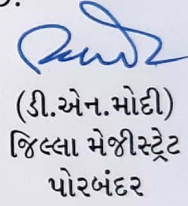 (ડી.એન.મોદી)
જિલ્લા મેજીસ્ટ્રેટ
પોરબંદર